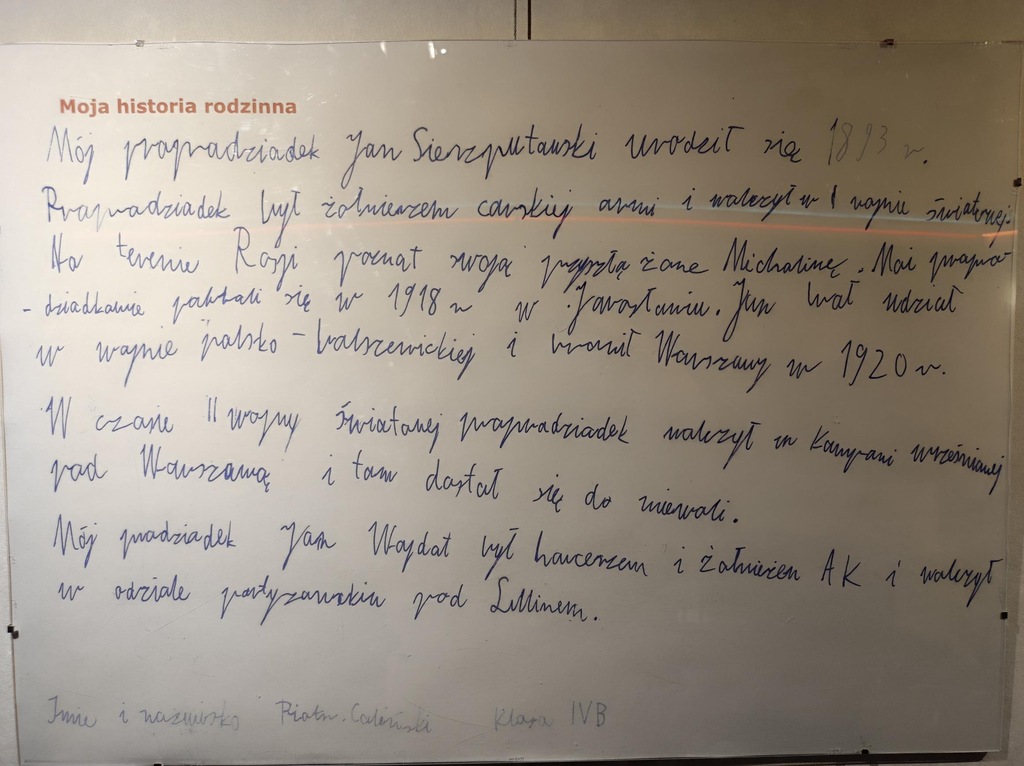 Moja historia rodzinna
Mój prapradziadek Jan Sierzputawski urodził się 1893 r.
Prapradziadek był żołnierzem carskiej armi i walczył w I wojnie światowej.
Na terenie Rosji poznał swoją przyszłą żone Michalinę. Moi prapra-
-dziadkowie pobrali się w 1918 r w Jarosławiu. Jan brał udział
w wojnie polsko-bolszewickiej i bronił Warszawy w 1920 r.
W czasie II wojny światowej prapradziadek walczył w Kampani wrześniowej
pod Warszawą i tam dostał się do niewoli.
Mój pradziadek Jan Wojdat był harcerzem i żołnieżem AK i walczył
w odziale partyzanckim pod Lublinem.
Imię i nazwisko Piotr Klasa IVB